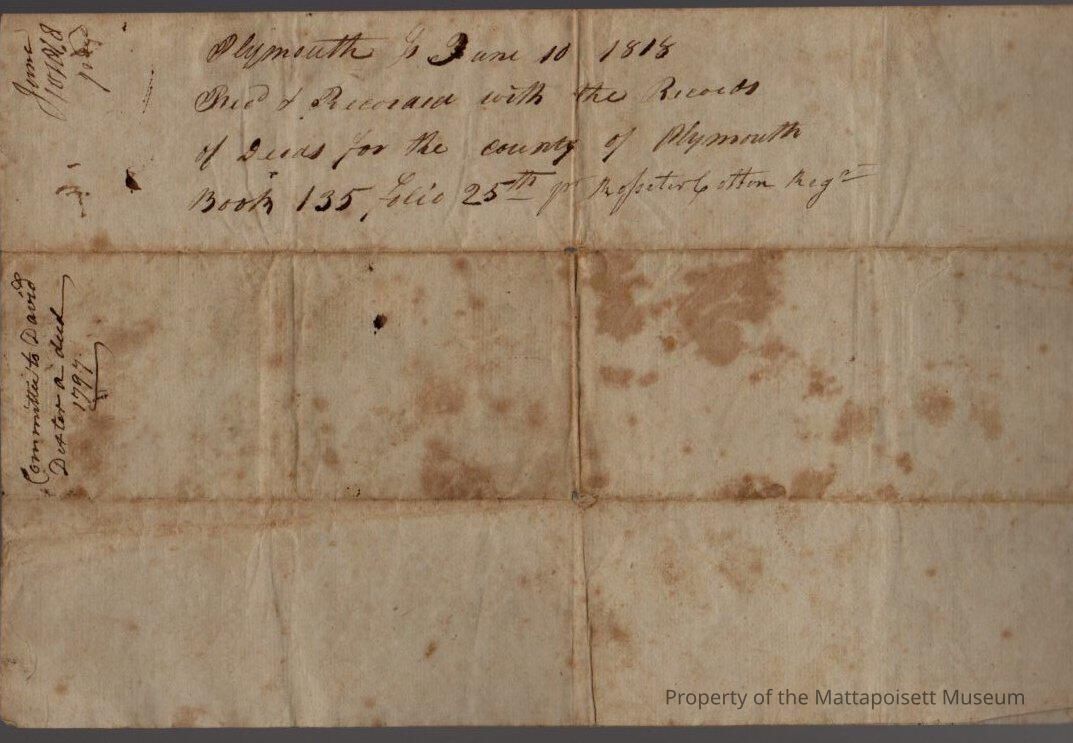 Plymouth Ss June 10 1818
Recd & Recorded with the Records
of Deeds for the county of Plymouth
Book 135 folio 25th pr Rosseter Cotton Regr
June
10 1818
Committee to David
Dexter a deed
1797
Property of the Mattapoisett Museum